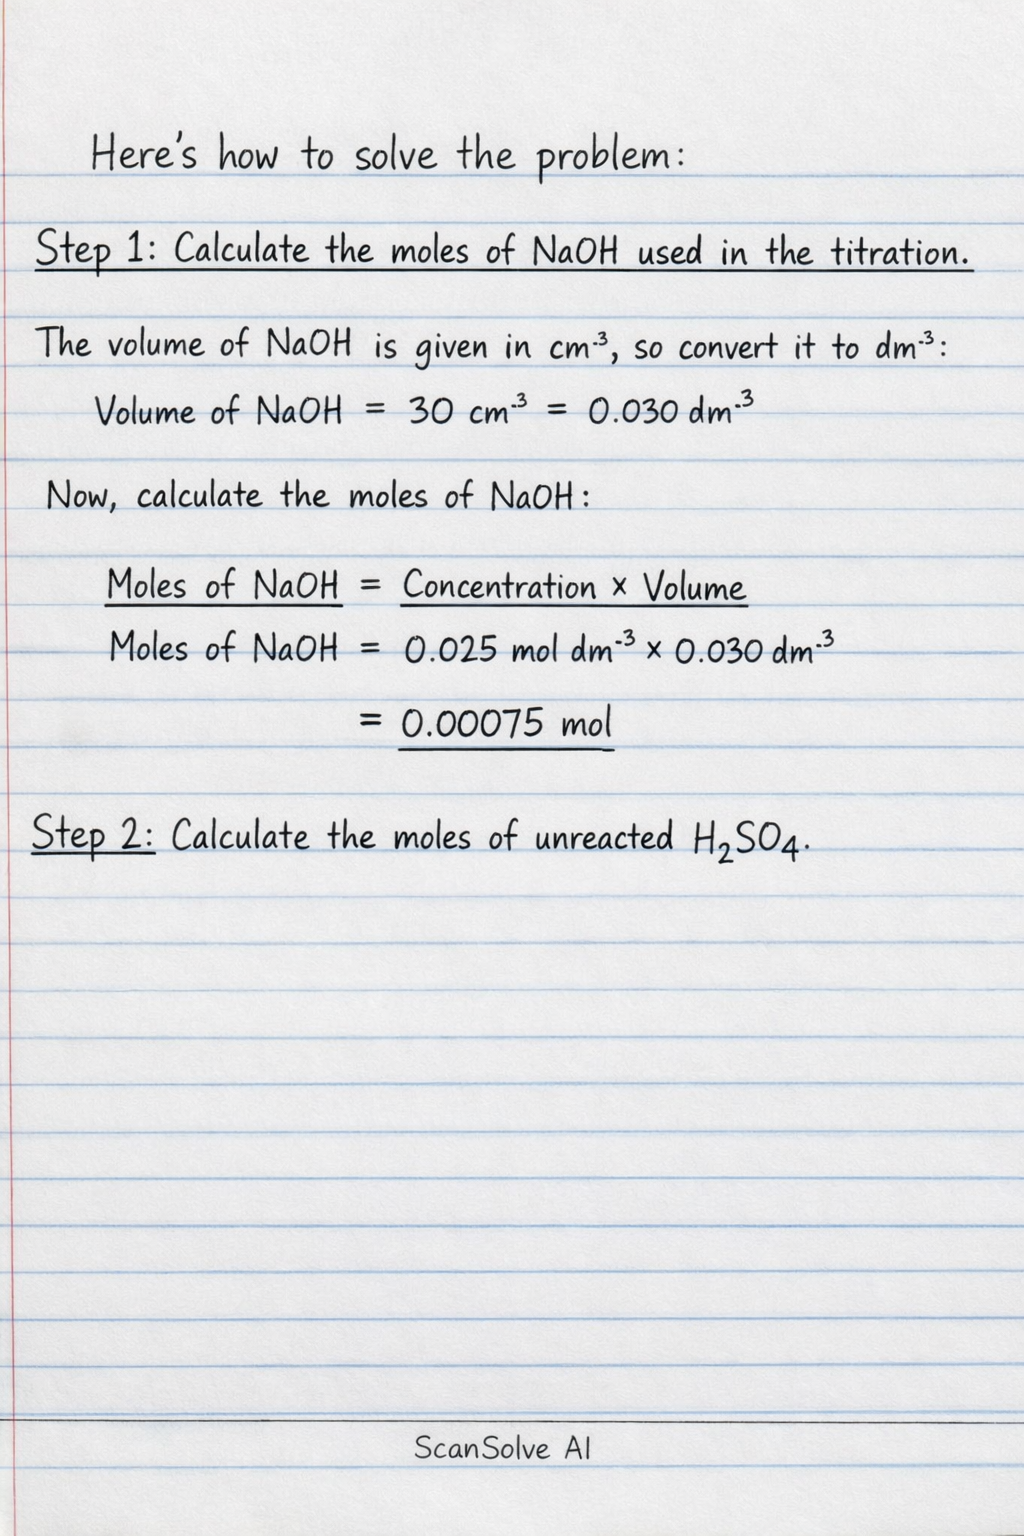 Here's how to solve the problem:
Step 1: Calculate the moles of NaOH used in the titration.
The volume of NaOH is given in cm⁻³, so convert it to dm⁻³:
Volume of NaOH = 30 cm⁻³ = 0.030 dm⁻³
Now, calculate the moles of NaOH:
Moles of NaOH = Concentration × Volume
Moles of NaOH = 0.025 mol dm⁻³ × 0.030 dm⁻³
= 0.00075 mol
Step 2: Calculate the moles of unreacted H₂SO₄.
ScanSolve AI